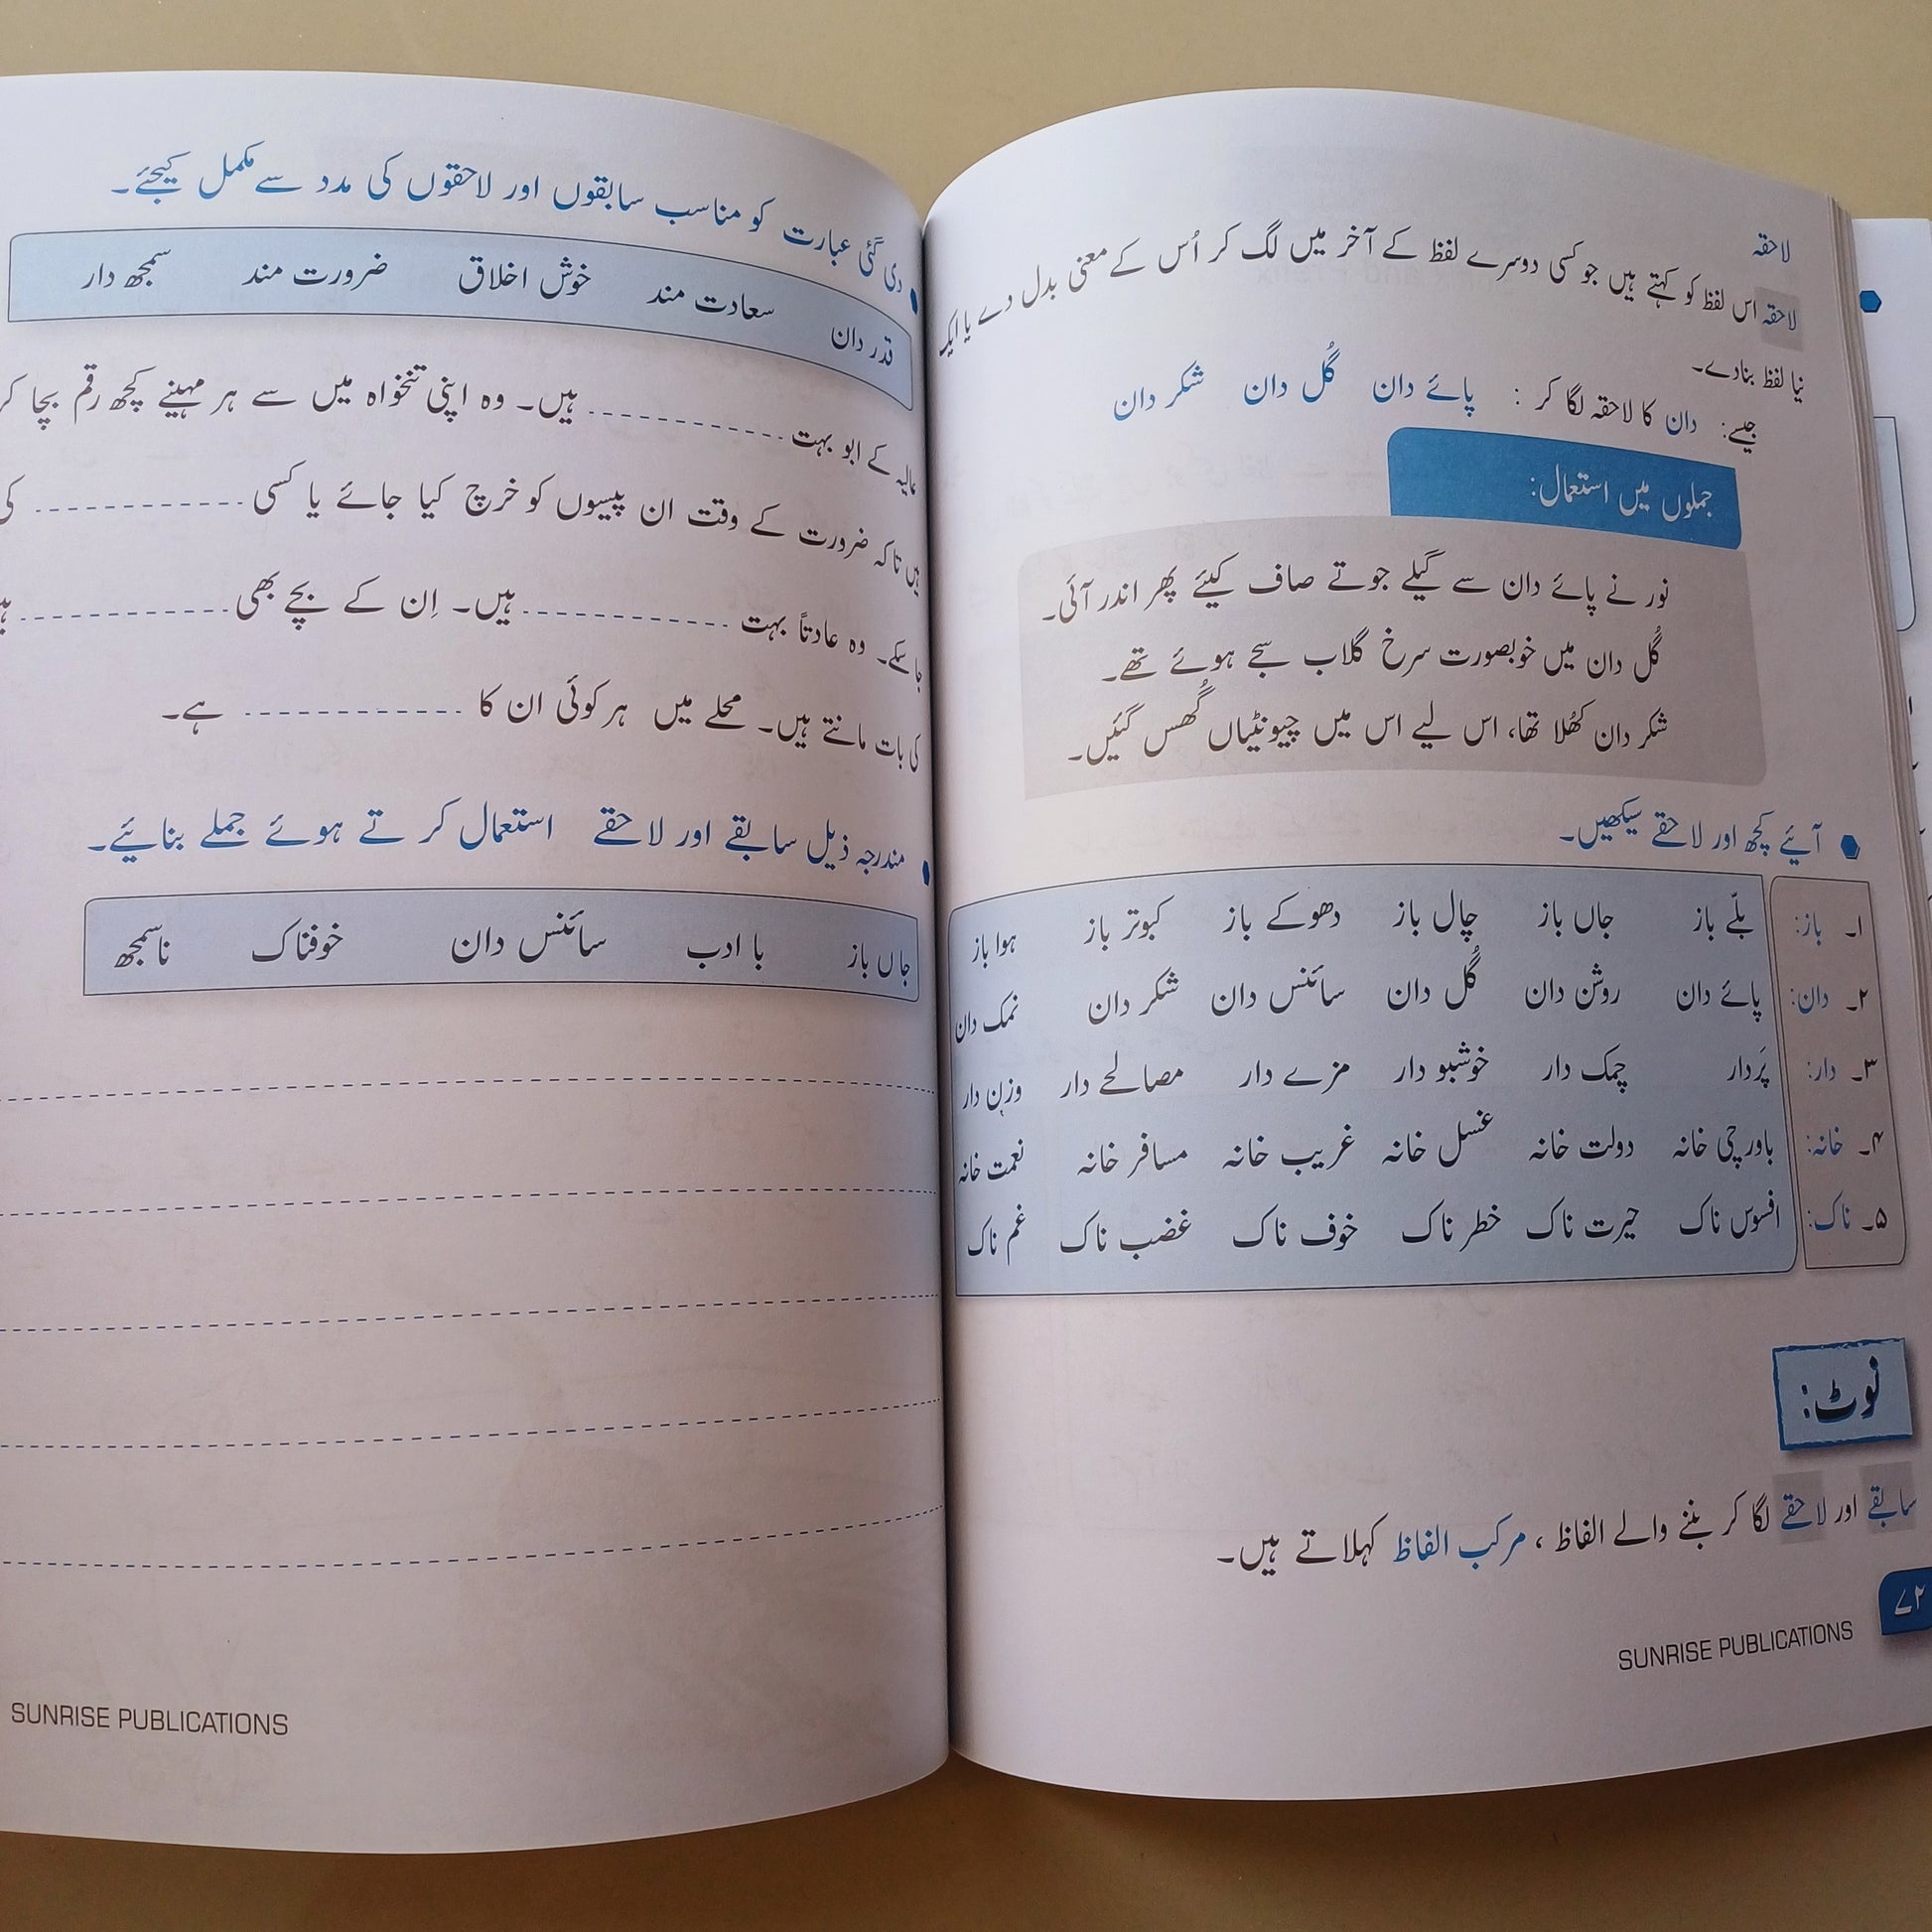 لاحقہ
لاحقہ اس لفظ کو کہتے ہیں جو کسی دوسرے لفظ کے آخر میں لگ کر اُس کے معنی بدل دے یا ایک
نیا لفظ بنادے۔
جیسے: دان کا لاحقہ لگا کر : پائے دان گُل دان شکر دان
جملوں میں استعمال:
نور نے پائے دان سے گیلے جوتے صاف کیئے پھر اندر آئی۔
گُل دان میں خوبصورت سرخ گلاب سجے ہوئے تھے۔
شکر دان کھُلا تھا، اس لیے اس میں چیونٹیاں گھُس گئیں۔
آیئے کچھ اور لاحقے سیکھیں۔
۱۔ باز: بلّے باز جاں باز چال باز دھوکے باز کبوتر باز ہوا باز
۲۔ دان: پائے دان روشن دان گُل دان سائنس دان شکر دان نمک دان
۳۔ دار: پَردار چمک دار خوشبو دار مزے دار مصالحے دار وزن دار
۴۔ خانہ: باورچی خانہ دولت خانہ غسل خانہ غریب خانہ مسافر خانہ نعمت خانہ
۵۔ ناک: افسوس ناک حیرت ناک خطر ناک خوف ناک غضب ناک غم ناک
نوٹ:
سابقے اور لاحقے لگا کر بننے والے الفاظ ، مرکب الفاظ کہلاتے ہیں۔
۷۲
SUNRISE PUBLICATIONS
دی گئی عبارت کو مناسب سابقوں اور لاحقوں کی مدد سے مکمل کیجئے۔
قدر دان سعادت مند خوش اخلاق ضرورت مند سمجھ دار
عالیہ کے ابو بہت ------------ ہیں۔ وہ اپنی تنخواہ میں سے ہر مہینے کچھ رقم بچا کر
ہیں تاکہ ضرورت کے وقت ان پیسوں کو خرچ کیا جائے یا کسی ------------ کی
جا سکے۔ وہ عادتاً بہت ------------ ہیں۔ اِن کے بچے بھی ------------
کی بات مانتے ہیں۔ محلے میں ہر کوئی ان کا ------------ ہے۔
مندرجہ ذیل سابقے اور لاحقے استعمال کر تے ہوئے جملے بنائیے۔
جاں باز با ادب سائنس دان خوفناک ناسمجھ
SUNRISE PUBLICATIONS